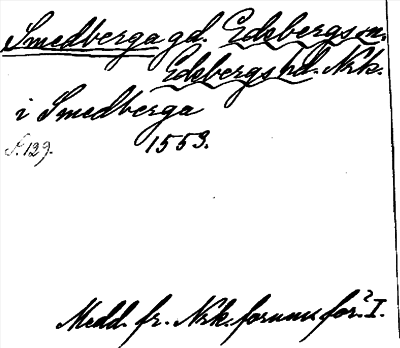 Smedberga gd. Edsbergs sn.
Edsbergs hd. Nrk.
i Smedberga
S. 129. 1553.
Medd. fr. Nrk. fornm. för. I.